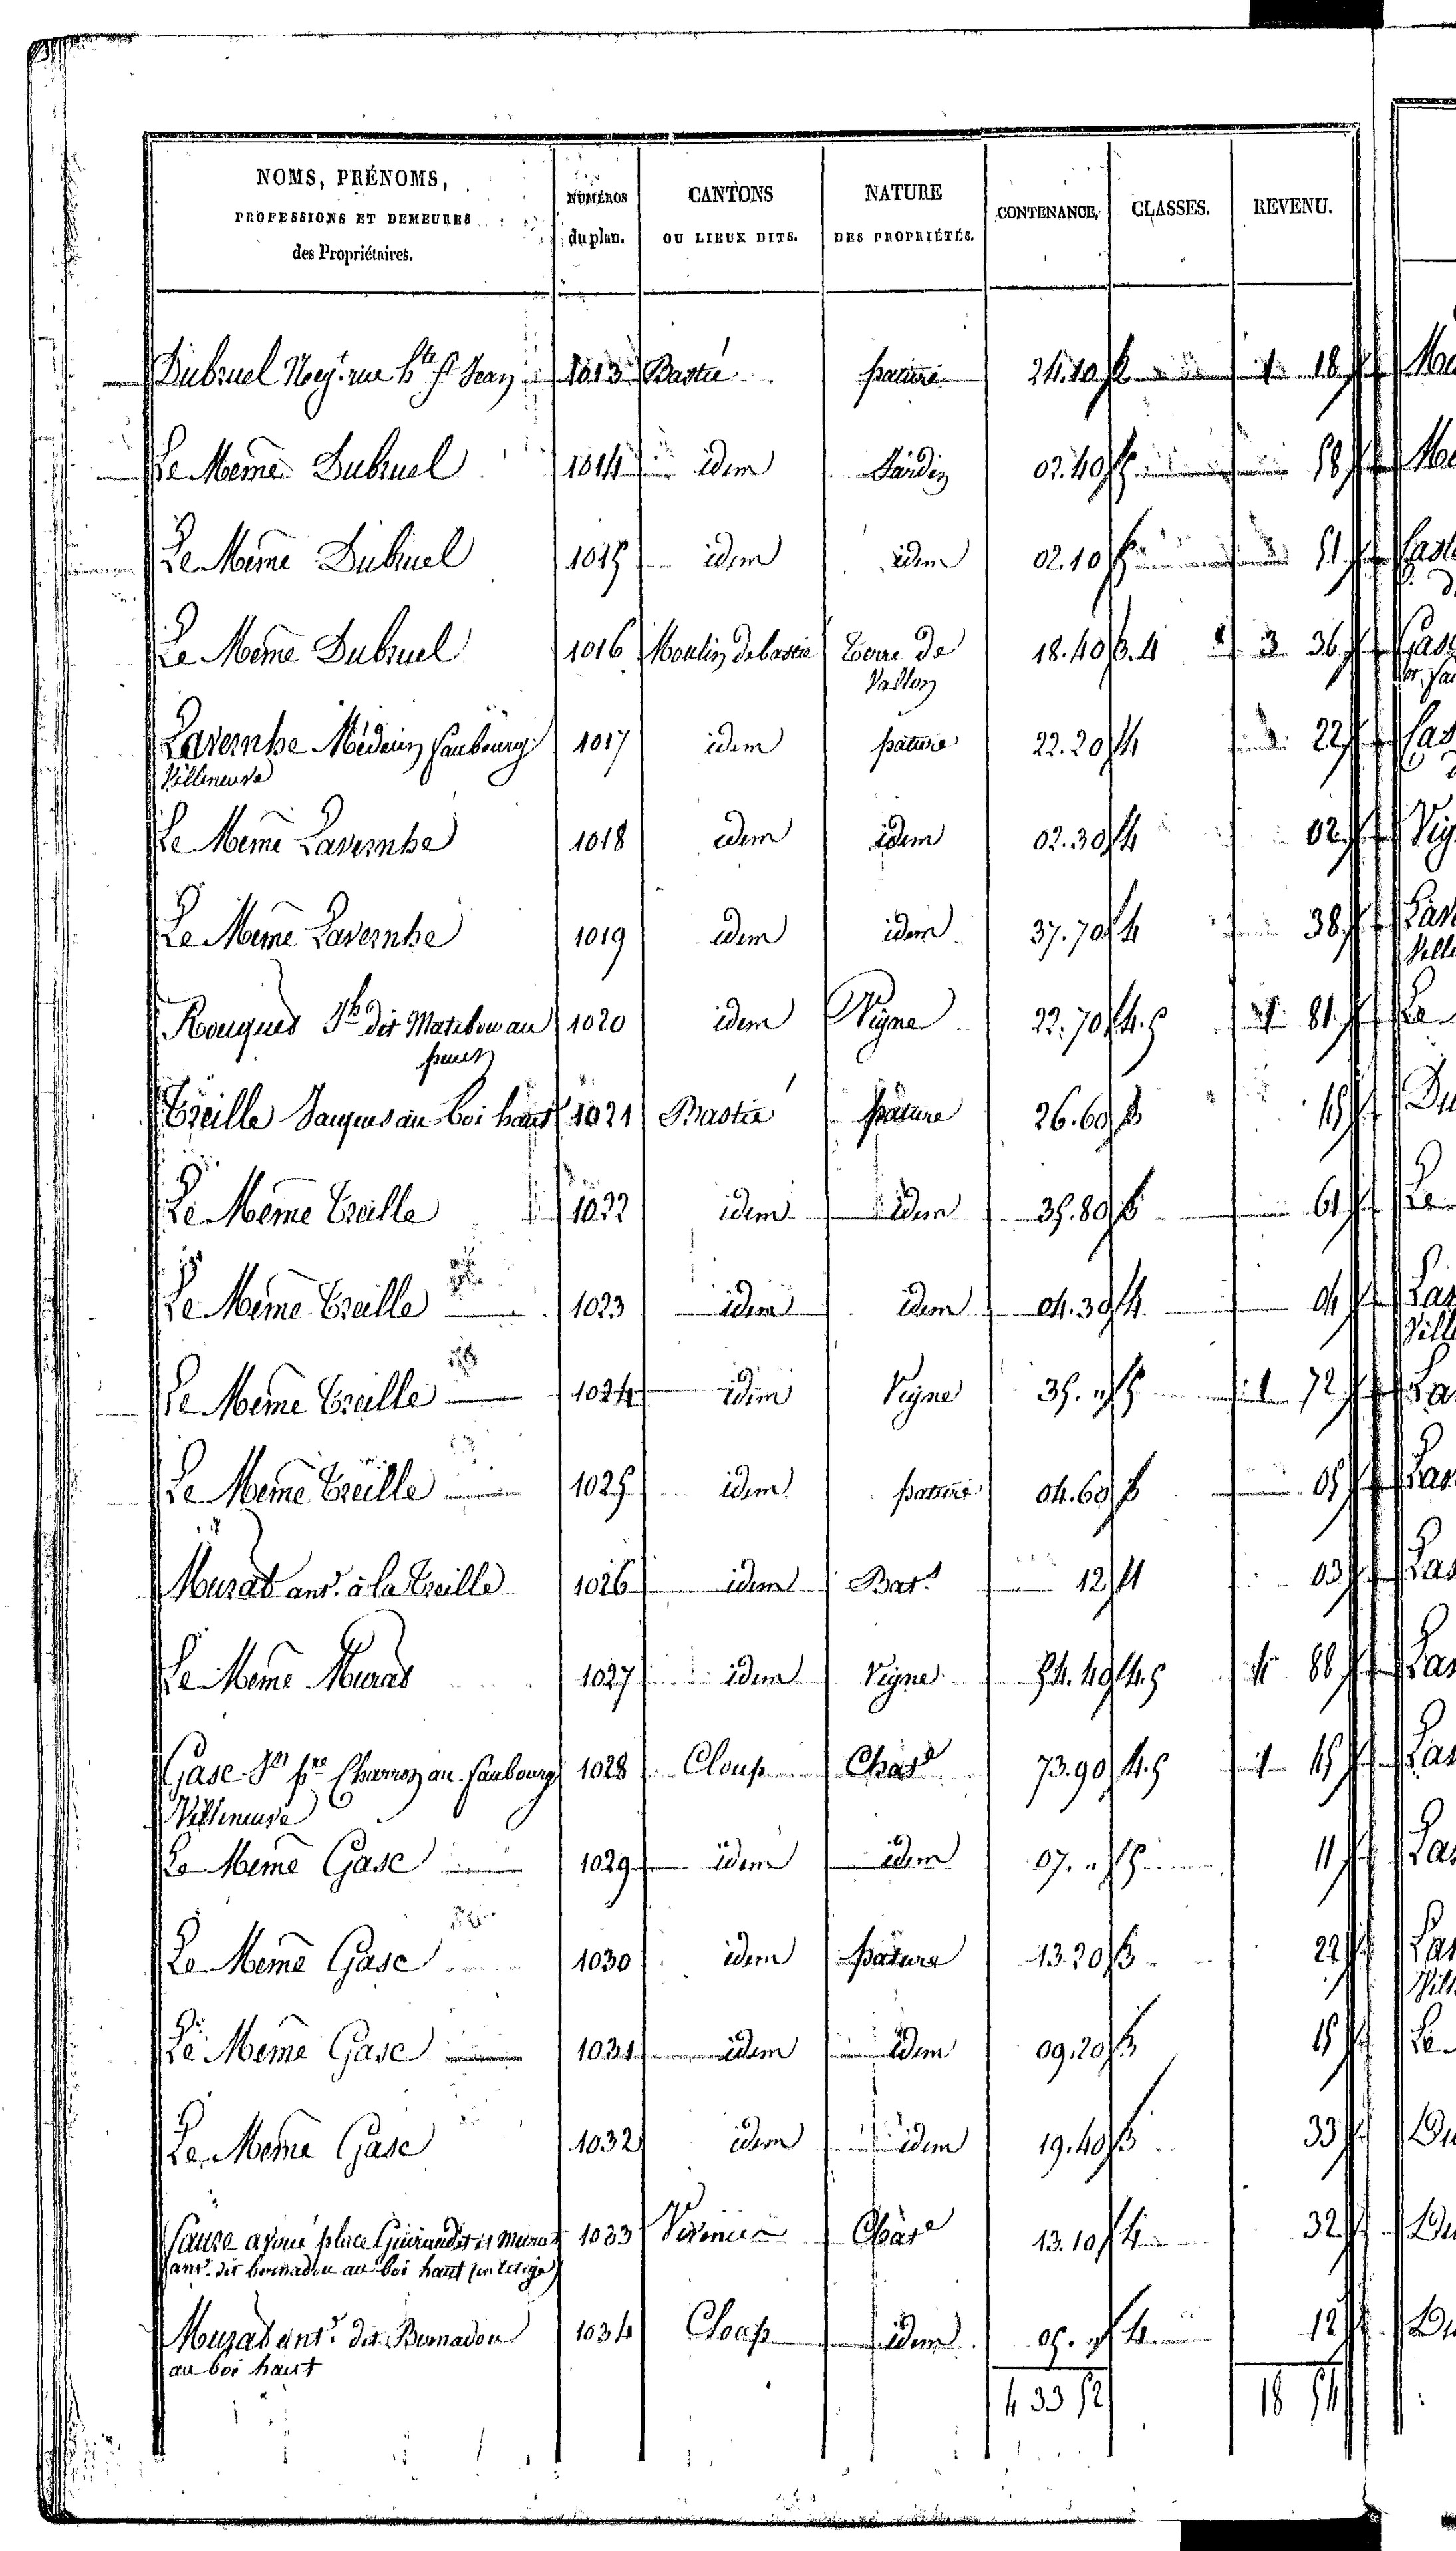 NOMS, PRÉNOMS,
PROFESSIONS ET DEMEURES
des Propriétaires.
NUMÉROS
du plan.
CANTONS
OU LIEUX DITS.
NATURE
DES PROPRIÉTÉS.
CONTENANCE.
CLASSES.
REVENU.
Dubruel Neg.t rue h.te St Jean 1013 Bastié pature 24.10 2 18
Le Meme Dubruel 1014 idem Jardin 02.40 58
Le Meme Dubruel 1015 idem idem 02.10 51
Le Meme Dubruel 1016 Moulin de bastié Terre de 18.40 3.4 3 36
Vallon
Lavernhe Médecin faubourg 1017 idem pature 22.20 4 22
Villeneuve
Le Meme Lavernhe 1018 idem idem 02.30 4 02
Le Meme Lavernhe 1019 idem idem 37.70 4 38
Rouques dit au 1020 idem Vigne 22.70 4.5 1 81
Treille Jaques au boi haut 1021 Bastié pature 26.60 3
Le Meme Treille 1022 idem idem 35.80 3 61
Le Meme Treille 1023 idem idem 04.30 4 04
Le Meme Treille 1024 idem Vigne 35. " 5 1 72
Le Meme Treille 1025 idem pature 04.60 3
Murat ant.e à la Treille 1026 idem Bat.t 12 4 03
Le Meme Murat 1027 idem Vigne 54.40 4.5 88
Gasc Charron au faubourg 1028 Cloup Chat.e 73.90 4.5 1
Villeneuve
Le Meme Gasc 1029 idem idem 07. " 5 11
Le Meme Gasc 1030 idem pature 13.20 3 22
Le Meme Gasc 1031 idem idem 09.20 3 15
Le Meme Gasc 1032 idem idem 19.40 3 33
avoué place et Murat 1033 Chat.e 13.10 4 32
ant.e dit bernadou au boi haut
Murat ant.e dit Bernadou 1034 Cloup idem 05. " 4 12
au boi haut
4 33 52 18 54